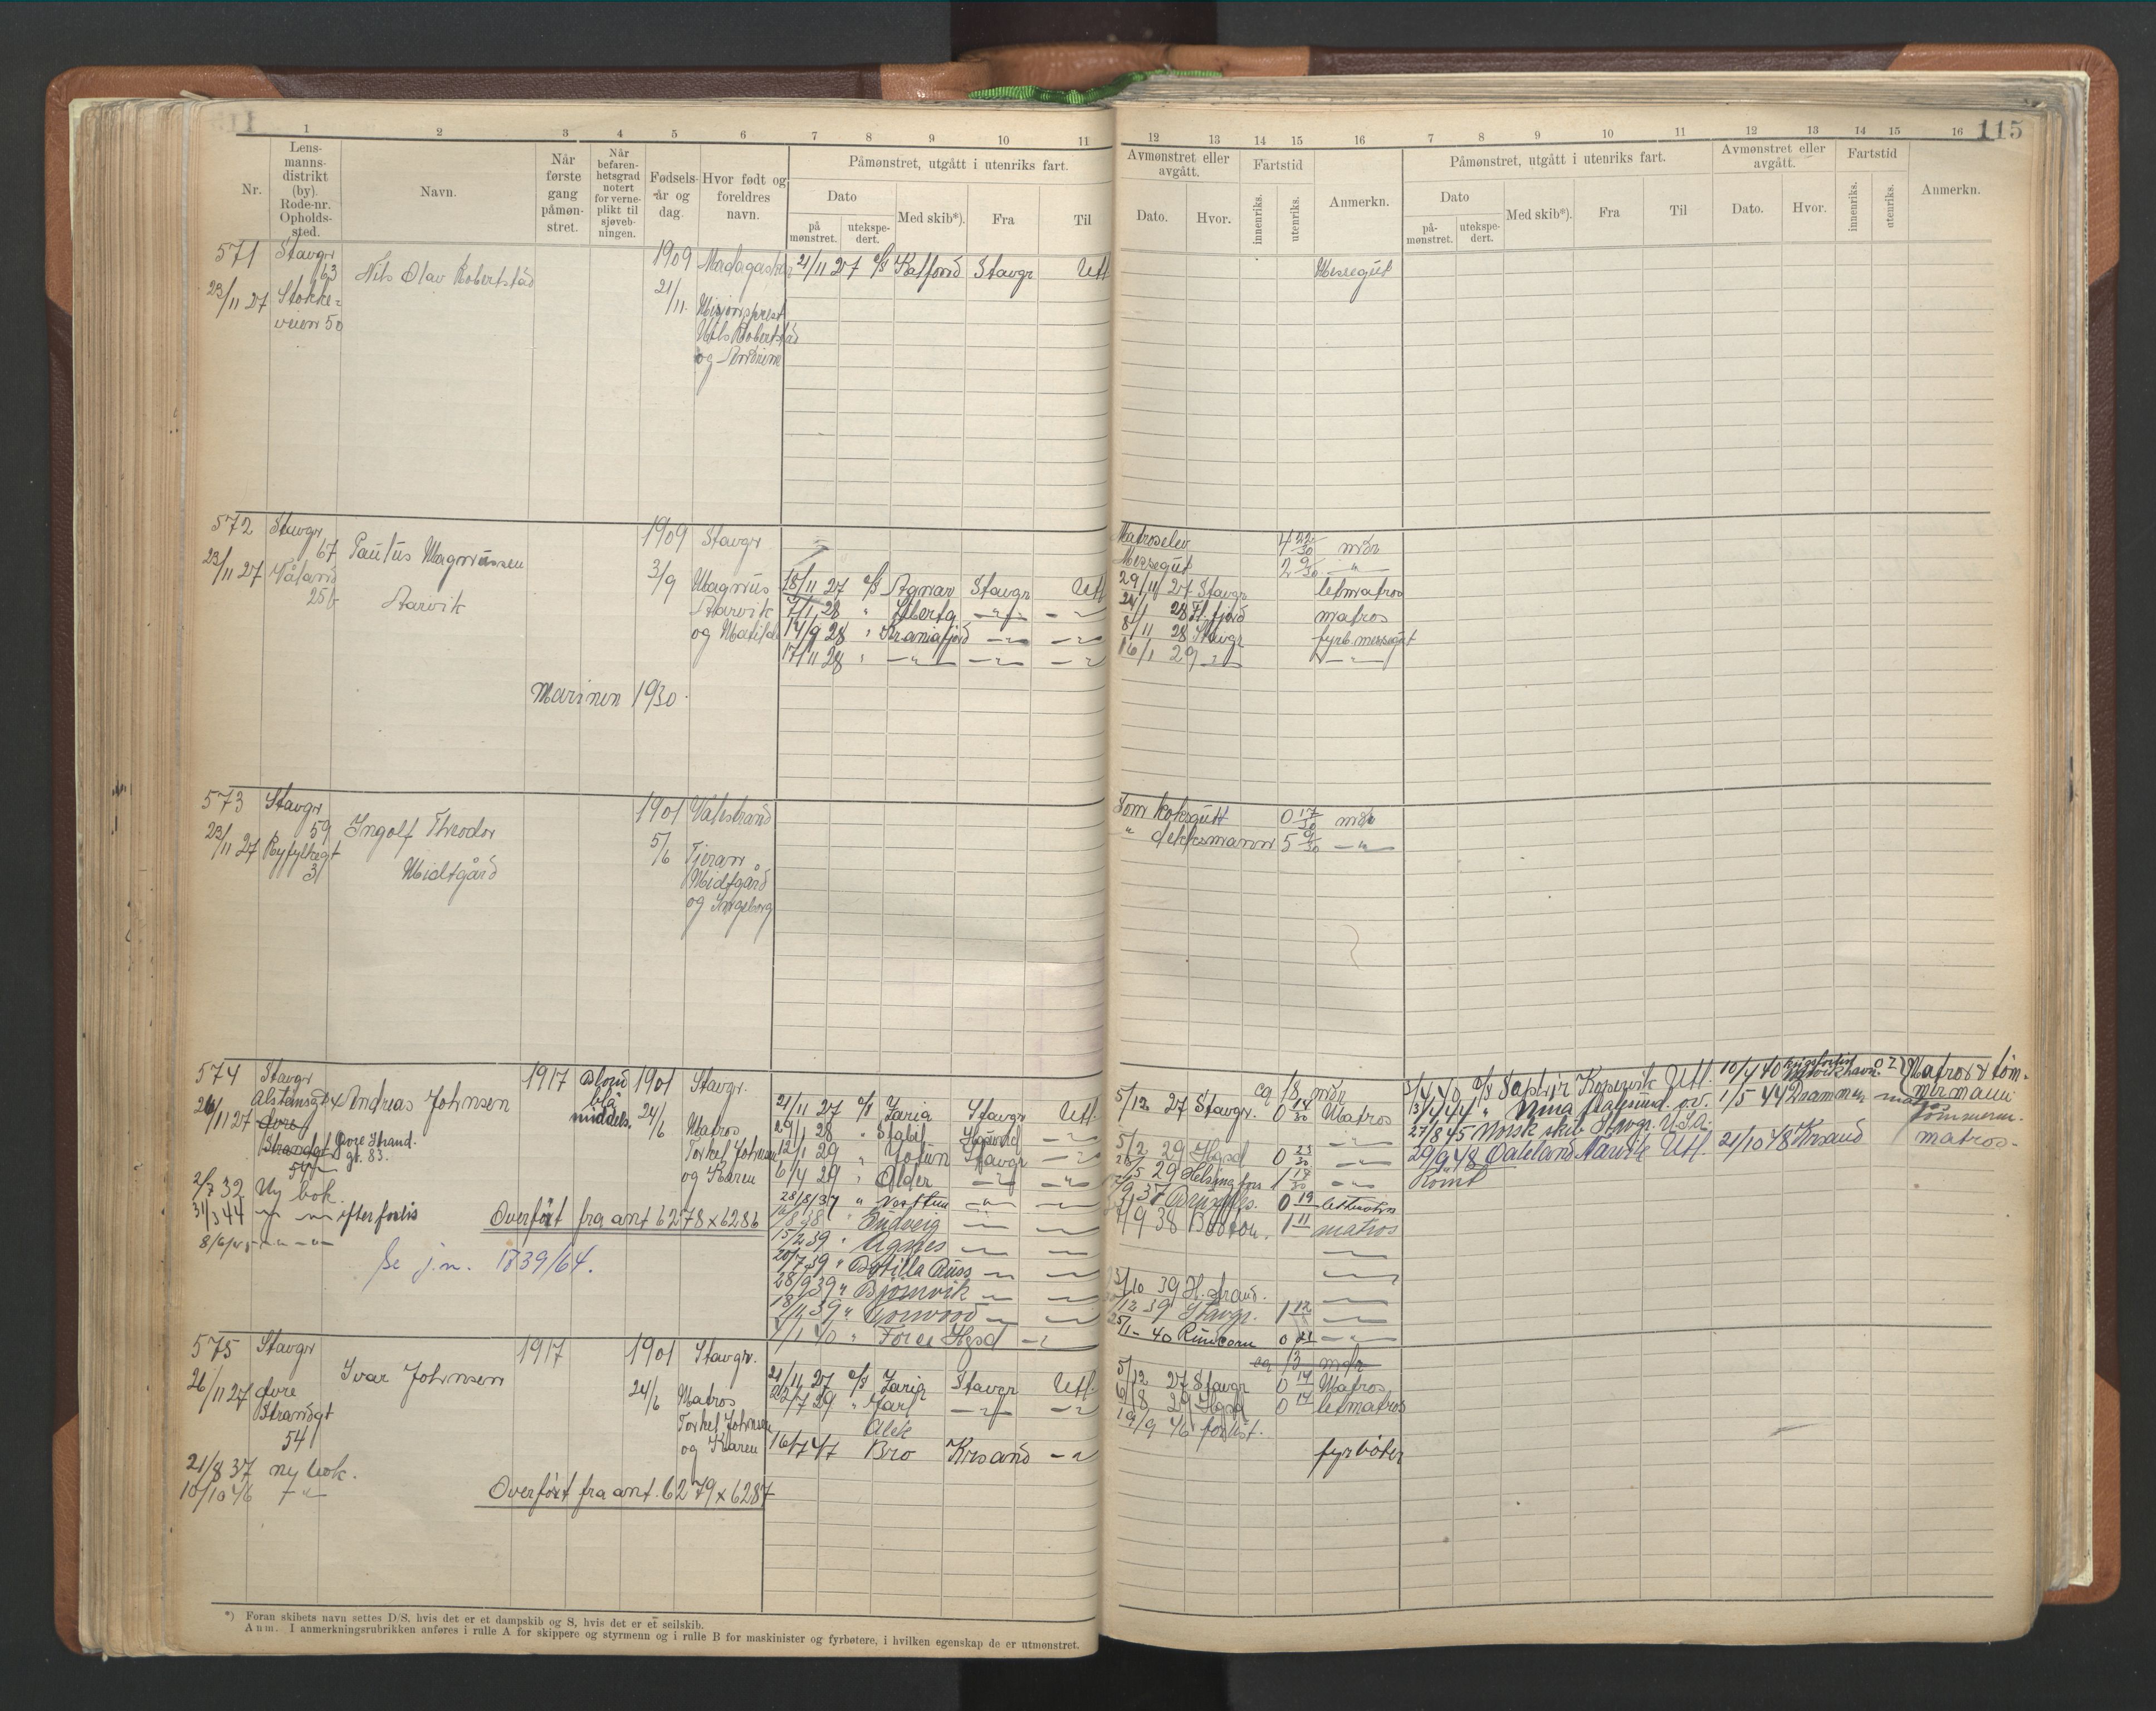 115
1 2 3 4 5 6 7 8 9 10 11 12 13 14 15 16 7 8 9 10 11 12 13 14 15 16
Nr.
Lens-
manns-
distrikt
(by).
Rode-nr.
Opholds-
sted.
Navn.
Når
første
gang
påmøn-
stret.
Når
befaren-
hetsgrad
notert
for verne-
plikt til
sjøveb-
ningen.
Fødsels-
år og
dag.
Hvor født og
foreldres
navn.
Påmønstret, utgått i utenriks fart.
Dato
på
mønstret.
utekspe-
dert.
Med skib*).
Fra
Til
Avmønstret eller
avgått.
Dato.
Hvor.
Fartstid
innenriks.
utenriks.
Anmerkn.
Påmønstret, utgått i utenriks fart.
Dato
på-
mønstret.
utekspe-
dert.
Med skib*).
Fra
Til
Avmønstret eller
avgått.
Dato.
Hvor.
Fartstid
innenriks.
utenriks.
Anmerkn.
571 Stavgr 63
23/11 27 Stokke=
veien 50
Nils Olav Robertstad
1909
21/11
Madagaskar
Misjonsprest
Nils Robertstad
og Andrine
21/11 27 d/s Kalfond Stavgr Utl
Messegut
572 Stavgr 67
23/11 27 Våland
25b
Paulus Magnussen
Aarvik
1909 Stavgr
3/9 Magnus
Aarvik
og Matilde
Matroselev 4 22/30 mdr
Messegut 2 9/30 - " -
18/11 27 d/s Agnar Stavgr Utl 29/11 27 Stavgr letmatros
7/1 28 " 24/1 28 Fl.fjord matros
14/9 28 " Kraniafjord 8/11 28 Stavgr fyrb. messegut
17/11 28 " 16/1 29
Marinen 1930.
573 Stavgr 59
23/11 27 Ryfylkegt
31
Ingolf Theodor
Midtgård
1901 Valestrand
5/6 Tjeran
Midtgård
og Ingeborg
Som koksgutt 0 17/30 mdr
" dekksmann 5 9/30 - " -
574 Stavgr
26/11 27 øvre
Strandgt
54
Øvre Strand.
gt. 83.
Andreas Johnsen
1917 Blond
blå
middels.
1901 Stavgr.
24/6 Matros
Torkel Johnsen
og Karen
2/7 32 Ny bok.
31/3 44 efter forlis
8/6/45
Overført fra ant 6278 x 6286
Se j.n. 1839/64.
ca 18 mdr
21/11 27 d/s Zaria Stavgr Utl. 5/12 27 Stavgr. 0 14/30 Matros
29/1 28 " Stabil
12/1 29 " Jotun Stavgr 5/2 29 Hgsd 0 23/30
6/4 29 " Older 28/5 29 Helsingfors 1 18/30
28/8/37 " Vesttun 0 19 lettmatros
1/8 38 " Sudveig 7/9 38 Boston. 1 11 matros
15/2 39 " Agnes
20/7 39 " Botilla Russ
28/9 39 " Bjornvik 3/10 39 H.strand.
18/11 39 " Gonwood /12 39 Stavgr. 1 12
4/1 40 " Tore Hgsd 25/1- 40 Runcorn 0 21
3/4 40 d/s Saphir Kopervik Utl. 10/4 40
13/4 44 " Nina Aalesund. 1/5 44 Drammen
27/8 45 Norsk skib Stavgr. U.S.A.
29/9 48 Daleland Narvik Utl. 21/10 48 Krsand
Matros & töm-
mermann
tömmerm.
matros-
575 Stavgr
26/11 27 øvre
Strandgt
54
Ivar Johnsen
1917 1901 Stavgr.
24/6 Matros
Torkel Johnsen
og Karen
21/8 37 ny bok.
10/10 46 - " -
Overført fra ant. 6279 x 6287
ca 13 mdr
21/11 27 d/s Zaria Stavgr Utl. 5/12 27 Stavgr 0 14 Matros
22/7 29 " Jarl 6/8 29 Hgsd 0 14 letmatros
Alek 19/9 46 forlist.
16/7 47 Bro Krsand fyrbøter
*) Foran skibets navn settes D/S, hvis det er et dampskib og S, hvis det er et seilskib.
Anm. I anmerkningsrubrikken anføres i rulle A for skippere og styrmenn og i rulle B for maskinister og fyrbøtere, i hvilken egenskap de er utmønstret.